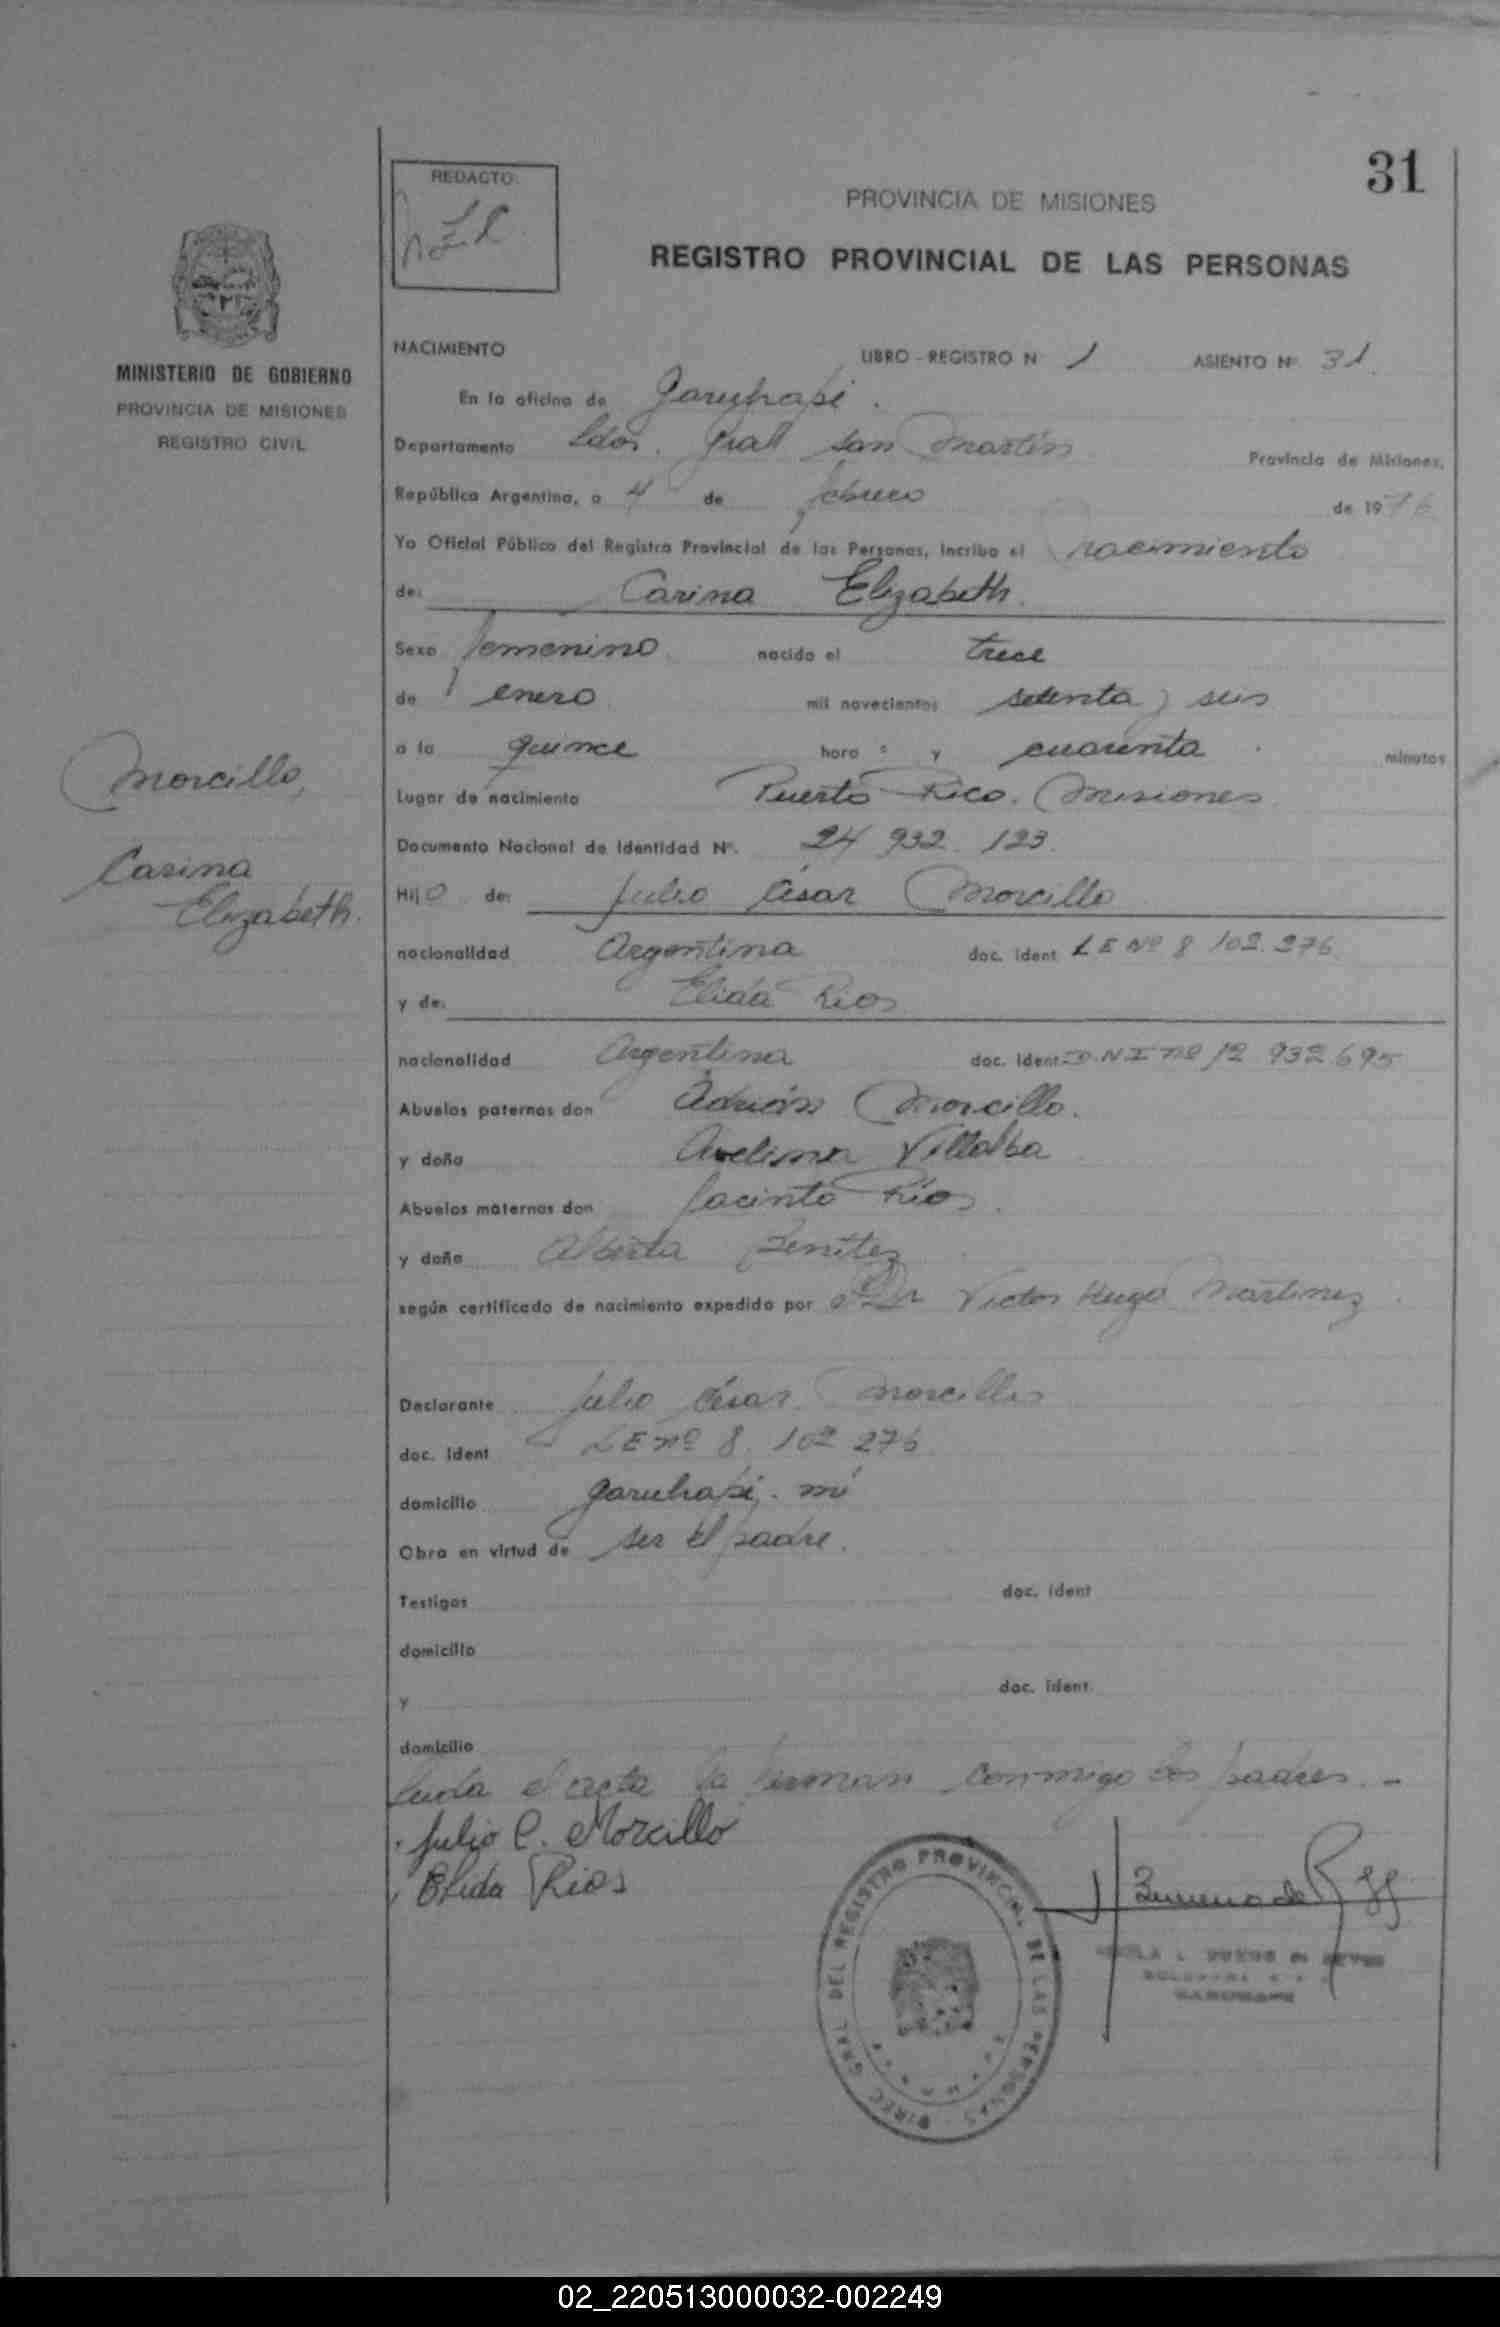 31
REDACTO:
PROVINCIA DE MISIONES
REGISTRO PROVINCIAL DE LAS PERSONAS
MINISTERIO DE GOBIERNO
PROVINCIA DE MISIONES
REGISTRO CIVIL
NACIMIENTO LIBRO - REGISTRO N 1 ASIENTO Nº 31
En la oficina de Garuhapé.
Departamento Ldor. Gral San Martín Provincia de Misiones,
República Argentina, a 4 de febrero de 1976
Yo Oficial Público del Registro Provincial de las Personas, incribo el nacimiento
de: Carina Elizabeth.
Sexo femenino nacido el trece
de enero mil novecientos setenta y seis
a la quince hora s y cuarenta minutos
Morcillo,
Carina
Elizabeth.
Lugar de nacimiento Puerto Rico. Misiones
Documento Nacional de Identidad Nº. 24 932 123.
Hijo de: Julio César Morcillo
nacionalidad Argentina doc. ident LE Nº 8 102.276
y de: Elida Rios
nacionalidad Argentina doc. ident D.N.I nº 12 932.695
Abuelos paternos don Adrián Morcillo.
y doña Avelina Villalba
Abuelos maternos don Jacinto Ríos.
y doña Alberta Benitez
según certificado de nacimiento expedido por Dr Victor Hugo Martinez.
Declarante Julio César Morcillo
doc. ident LE nº 8. 102 276
domicilio Garuhapé. Mi
Obra en virtud de ser el padre.
Testigos doc. ident
domicilio
y doc. ident.
domicilio
Leida el acta la firman conmigo los padres. -
Julio C. Morcillo
Elida Rios
DIREC GRAL DEL REGISTRO PROVINCIAL DE LAS PERSONAS
02_220513000032-002249